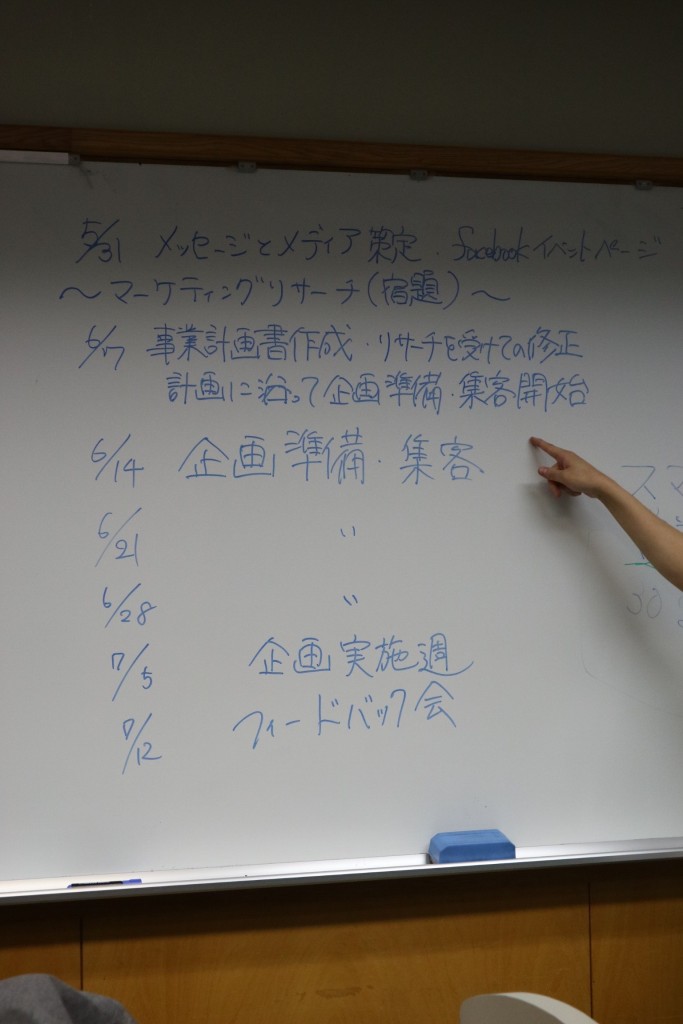 5/31 メッセージとメディア策定・facebookイベントページ
～マーケティングリサーチ(宿題)～
6/7 事業計画書作成・リサーチを受けての修正
計画に沿って企画準備・集客開始
6/14 企画準備・集客
6/21 〃
6/28 〃
7/5 企画実施週
7/12 フィードバック会
スマ